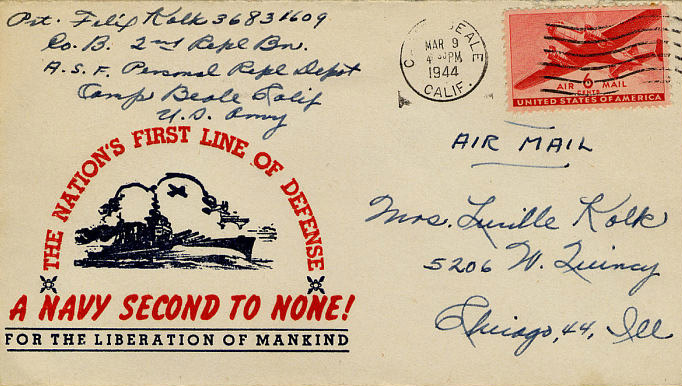 Pvt. Felix Kolk 36831609
Co. B. 2nd Repl Bn.
A.S.F. Personal Repl Depot
Camp Beale Calif
U.S. Army
CAMP BEALE
MAR 9
4:30PM
1944
CALIF.
AIR 6 MAIL
CENTS
UNITED STATES OF AMERICA
AIR MAIL
THE NATION'S FIRST LINE OF DEFENSE
A NAVY SECOND TO NONE!
FOR THE LIBERATION OF MANKIND
Mrs. Lucille Kolk
5206 W. Quincy
Chicago, 44, Ill